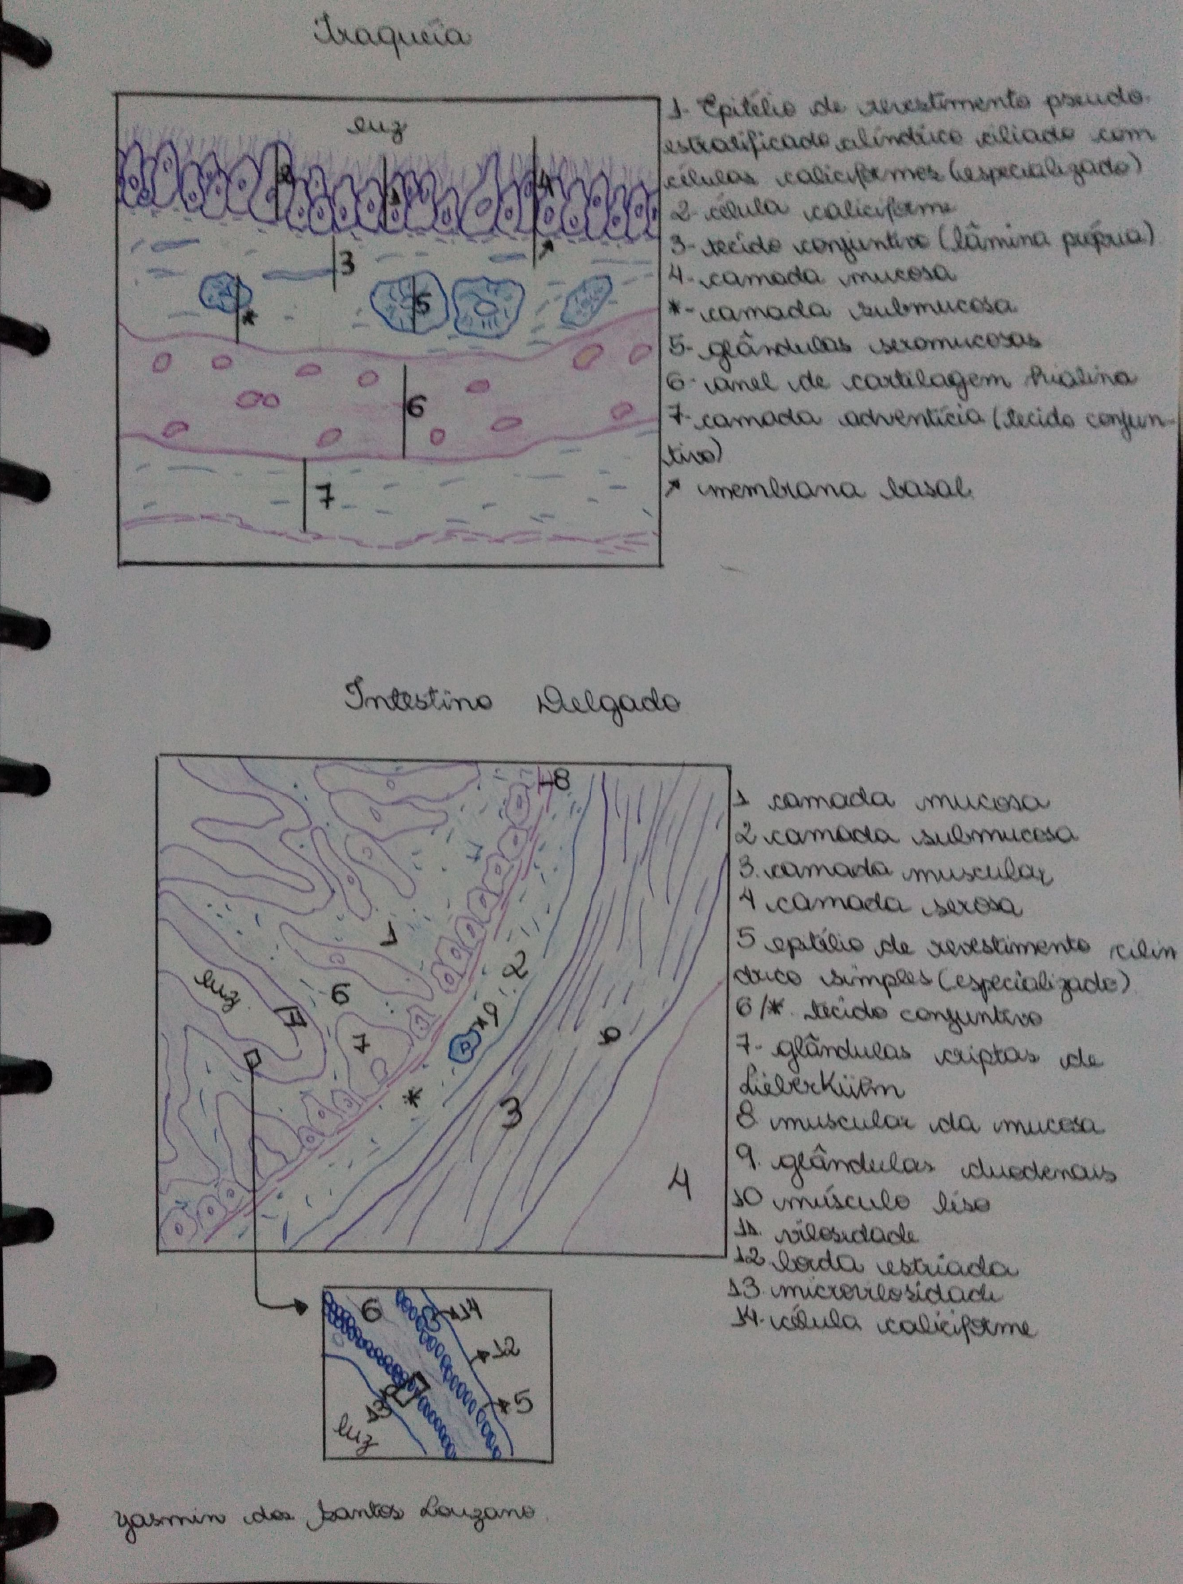 Traqueia
luz
1- Epitélio de revestimento pseudo-
estratificado cilíndrico ciliado com
células caliciformes (especializado)
2- célula caliciforme
3- tecido conjuntivo (lâmina própria)
4- camada mucosa
*- camada submucosa
5- glândulas seromucosas
6- anel de cartilagem hialina
7- camada adventícia (tecido conjun-
tivo)
↗ membrana basal
2
1
4
3
*
5
6
7
Intestino Delgado
1 camada mucosa
2 camada submucosa
3. camada muscular
4 camada serosa
5 epitélio de revestimento cilín
drico simples (especializado)
6/* tecido conjuntivo
7- glândulas criptas de
Lieberkühn
8 muscular da mucosa
9. glândulas duodenais
10 músculo liso
11. vilosidade
12 borda estriada
13 microvilosidade
14- célula caliciforme
8
1
2
luz
6
9
7
*
3
4
6
14
12
5
13
luz
Yasmin dos Santos Louzano.